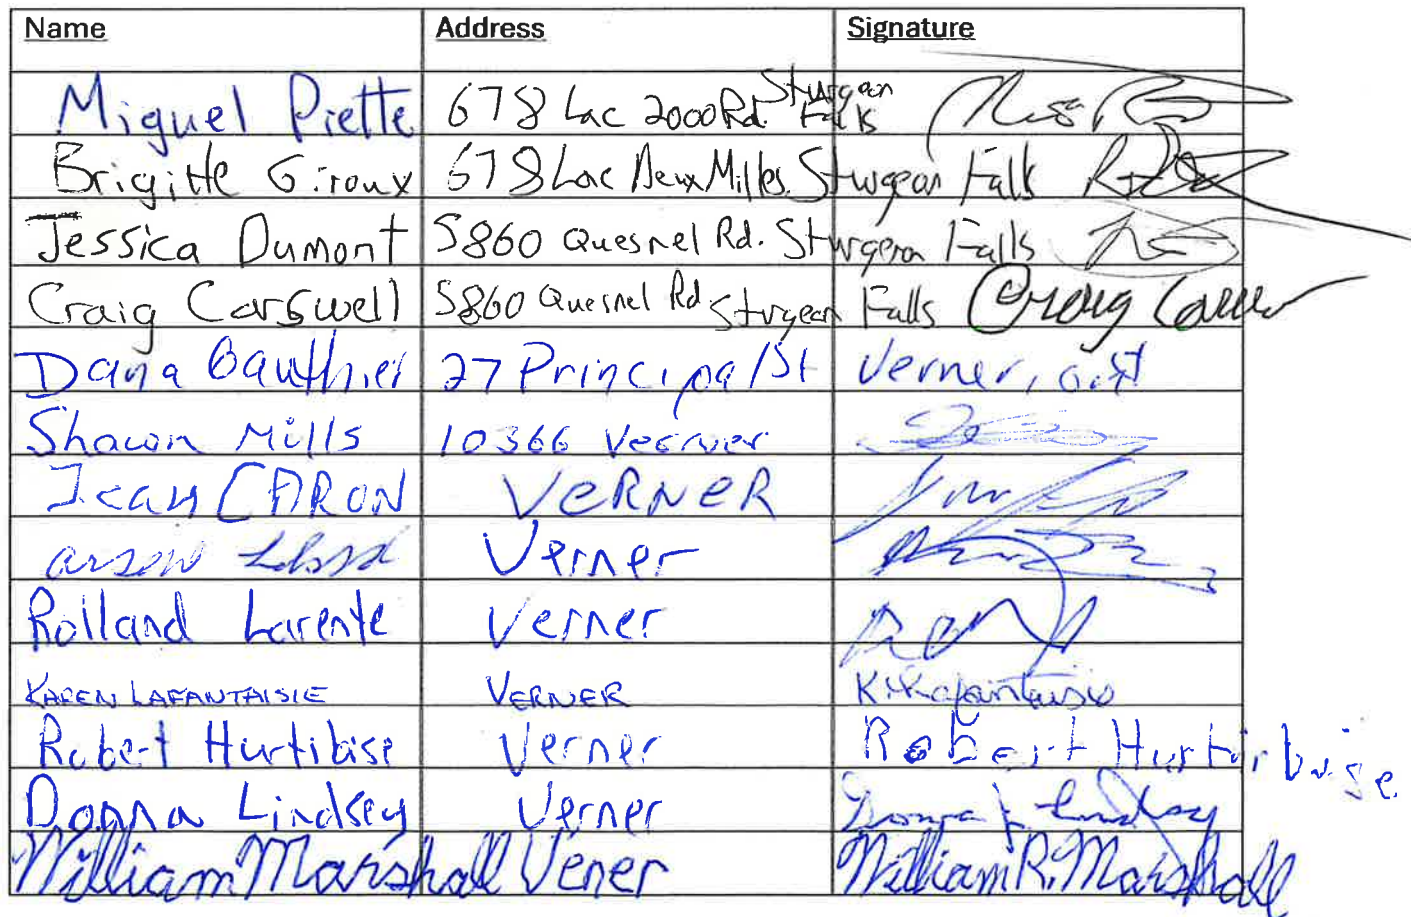 Name Address Signature
Miguel Piette 678 Lac 2000 Rd. Sturgeon Falls
Brigitte Giroux 678 Lac Deux Milles Sturgeon Falls
Jessica Dumont 5860 Quesnel Rd. Sturgeon Falls
Craig Carswell 5860 Quesnel Rd Sturgeon Falls Craig
Dana Gauthier 27 Principal St Verner, ont
Shawn Mills 10366 Verner
Jean CARON VERNER
Verner
Rolland Larente Verner
KAREN LAFANTAISIE VERNER K. Lafantaisie
Robert Hurtibise Verner Robert Hurtirbuise
Donna Lindsey Verner Donna L Lindsay
William Marshall Vener William R. Marshall